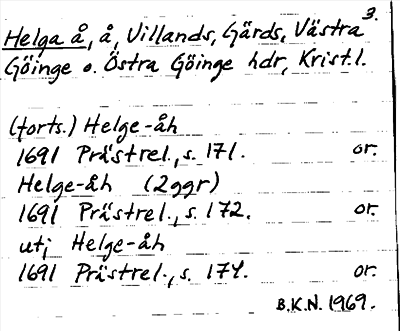 3.
Helga å, å, Villands, Gärds, Västra
Göinge o. Östra Göinge hdr, Krist.l.
(forts.) Helge-åh
1691 Prästrel., s. 171. or.
Helge-åh (2ggr)
1691 Prästrel., s. 172. or.
utj Helge-åh
1691 Prästrel., s. 174. or.
B.K.N. 1969.